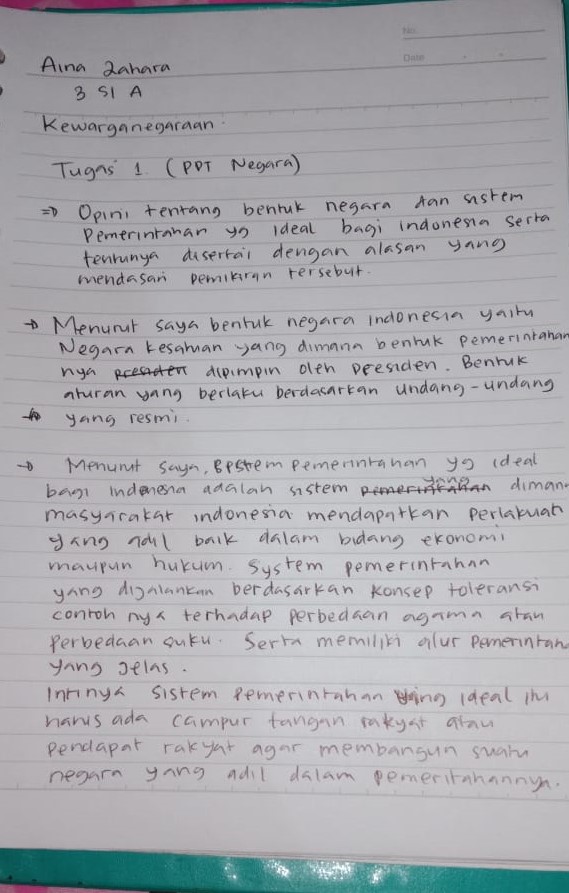 No:
Date
Aina Zahara
3 SI A
Kewarganegaraan
Tugas 1. (PPT Negara)
=> Opini tentang bentuk negara dan sistem
Pemerintahan yg ideal bagi indonesia serta
tentunya disertai dengan alasan yang
mendasari pemikiran tersebut.
→ Menurut saya bentuk negara indonesia yaitu
Negara kesatuan yang dimana bentuk pemerintahan
nya presiden dipimpin oleh presiden. Bentuk
aturan yang berlaku berdasarkan undang-undang
yang resmi.
→ Menurut saya, System pemerintahan yg ideal
bagi indonesia adalah sistem pemerintahan yang diman
masyarakat indonesia mendapatkan perlakuan
yang adil baik dalam bidang ekonomi
maupun hukum. System pemerintahan
yang dijalankan berdasarkan konsep toleransi
contoh nya terhadap perbedaan agama atau
Perbedaan suku. Serta memiliki alur pemerintah
yang jelas.
Intinya sistem pemerintahan yang ideal itu
harus ada campur tangan rakyat atau
pendapat rakyat agar membangun suatu
negara yang adil dalam pemeritahannya.